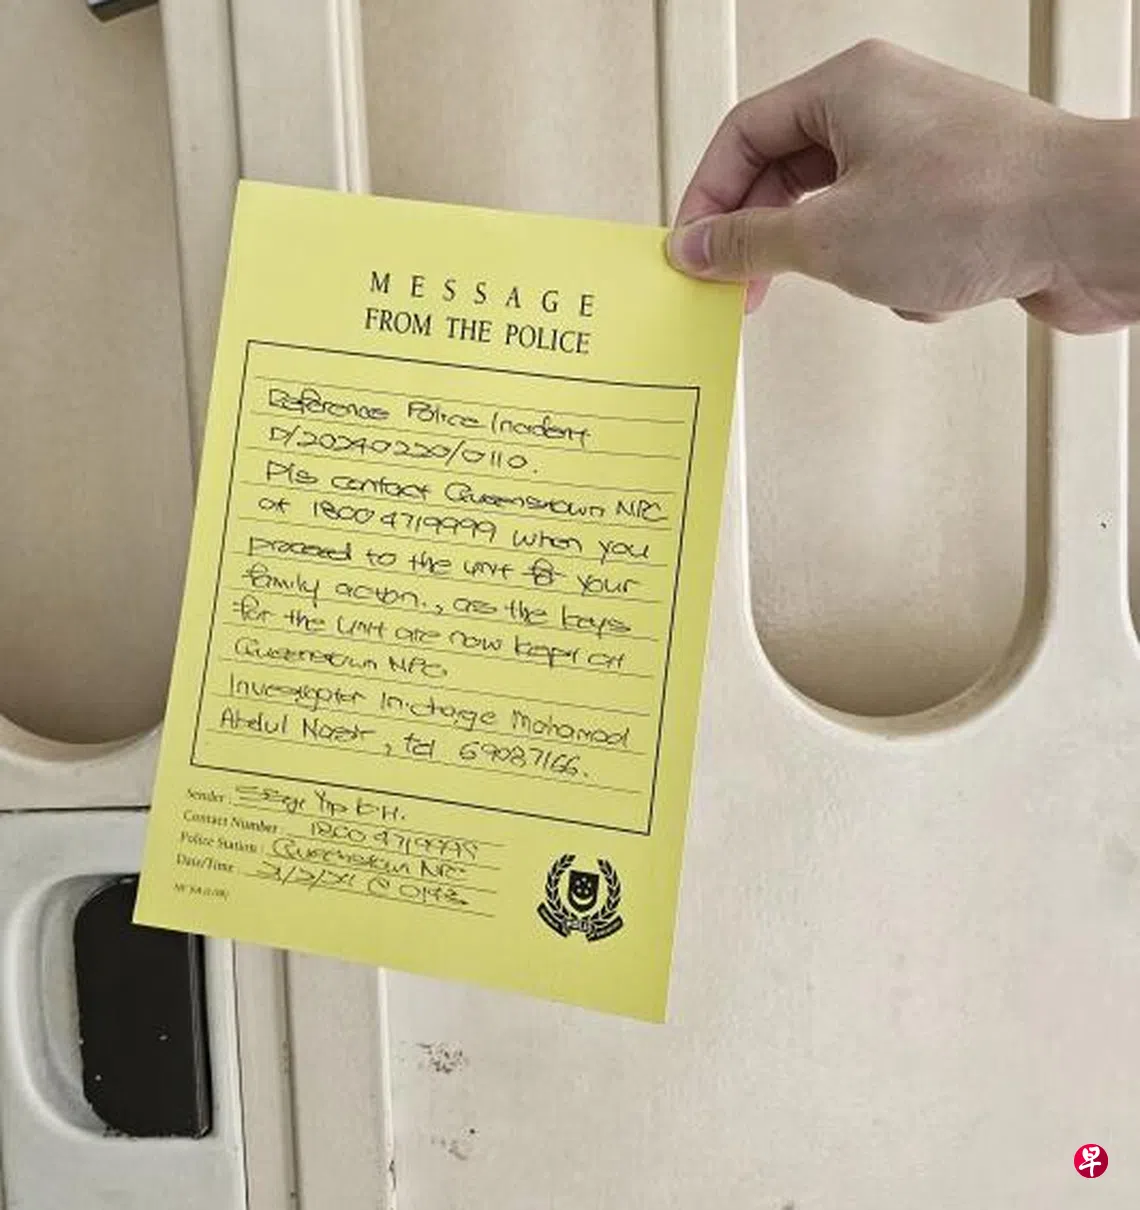 MESSAGE
FROM THE POLICE
Reference Police Incident
D/20240220/0110.
Pls contact Queenstown NPC
at 1800 4719999 when you
proceed to the unit for your
family action., as the keys
for the unit are now kept at
Queenstown NPC.
Investigator In-charge Mohamad
Abdul Nasir, tel 69087166.
Sender: Yip K.H.
Contact Number: 1800 4719999
Police Station: Queenstown NPC
Date/Time:
早